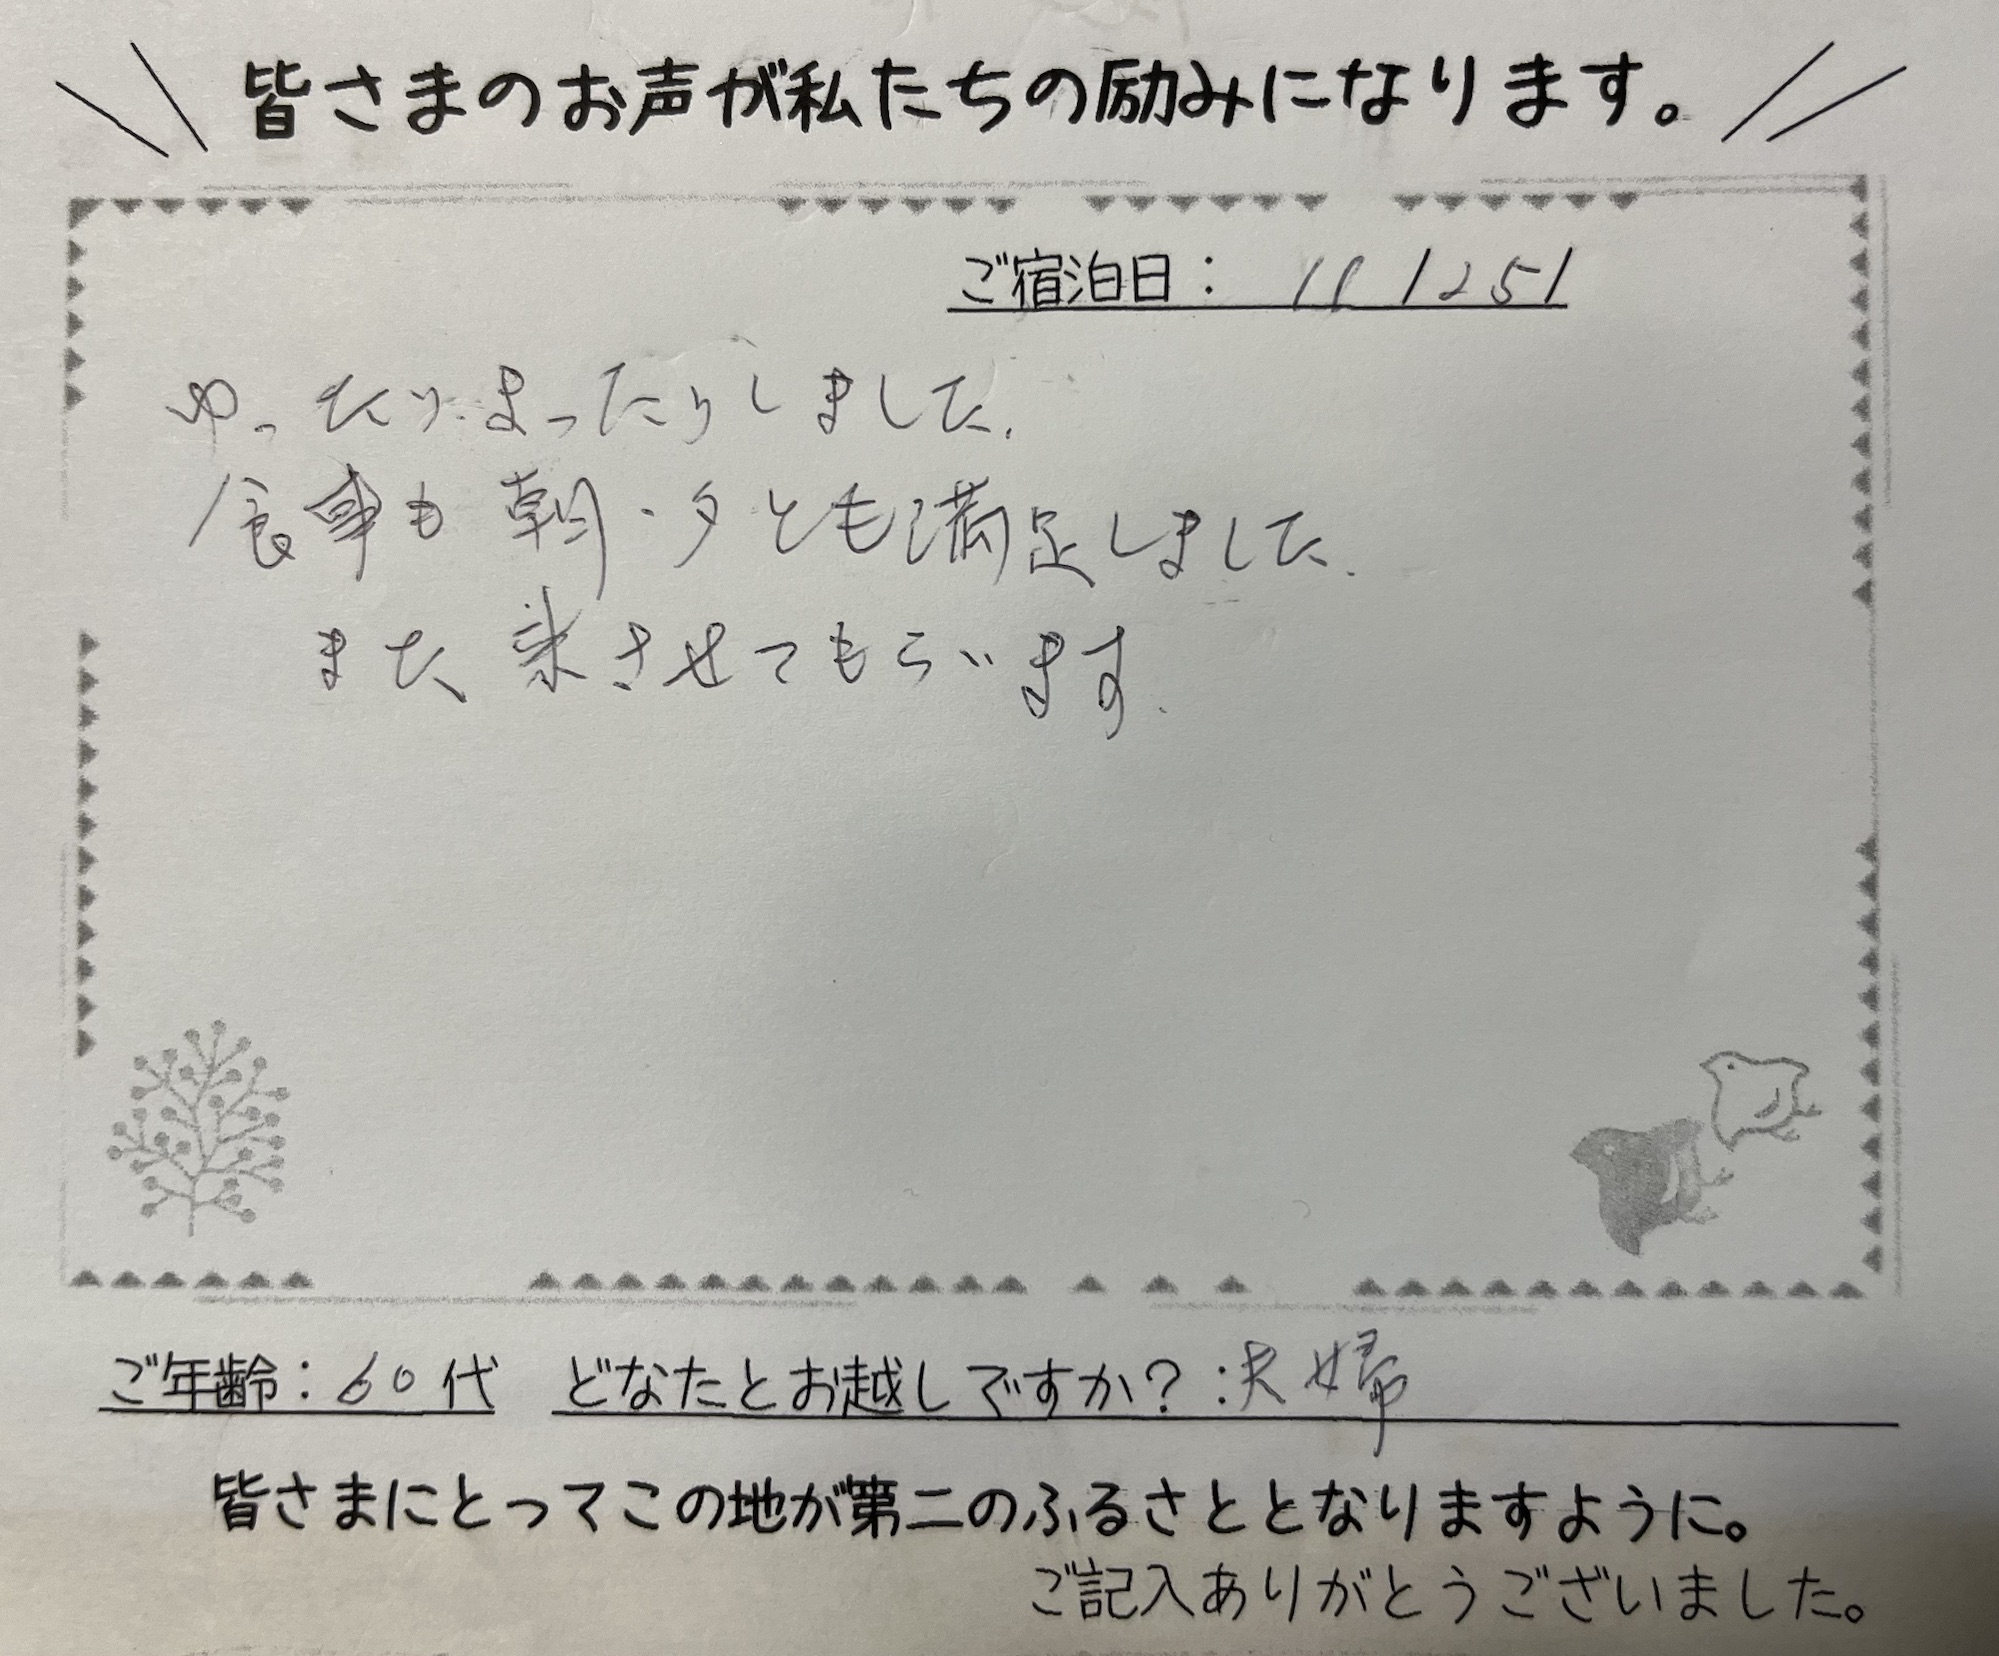 皆さまのお声が私たちの励みになります。
ご宿泊日：
ゆったりまったりしました.
食事も朝・夕とも満足しました.
また来させてもらいます.
ご年齢：60代 どなたとお越しですか？：夫婦
皆さまにとってこの地が第二のふるさととなりますように。
ご記入ありがとうございました。